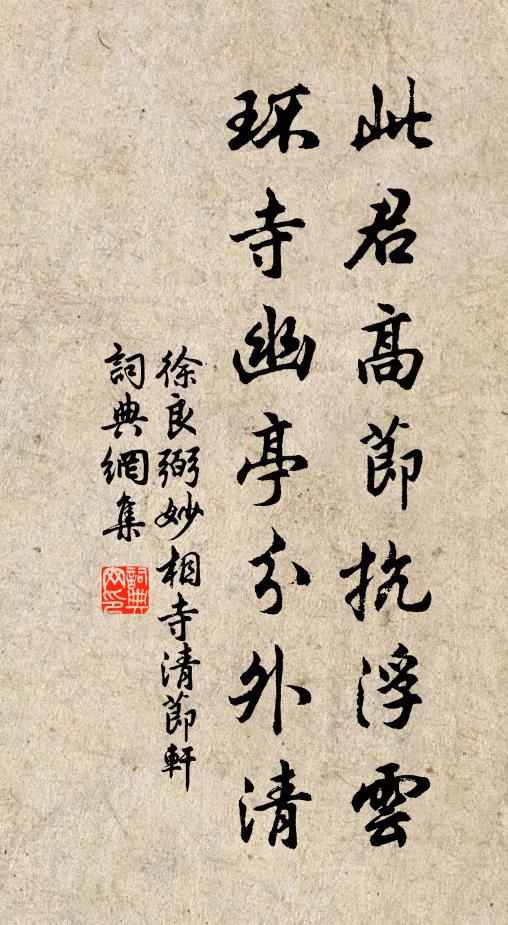 此君高節抗浮雲
琛寺幽亭分外清
徐良弼妙相寺清節軒
詞典網集
詞典網印